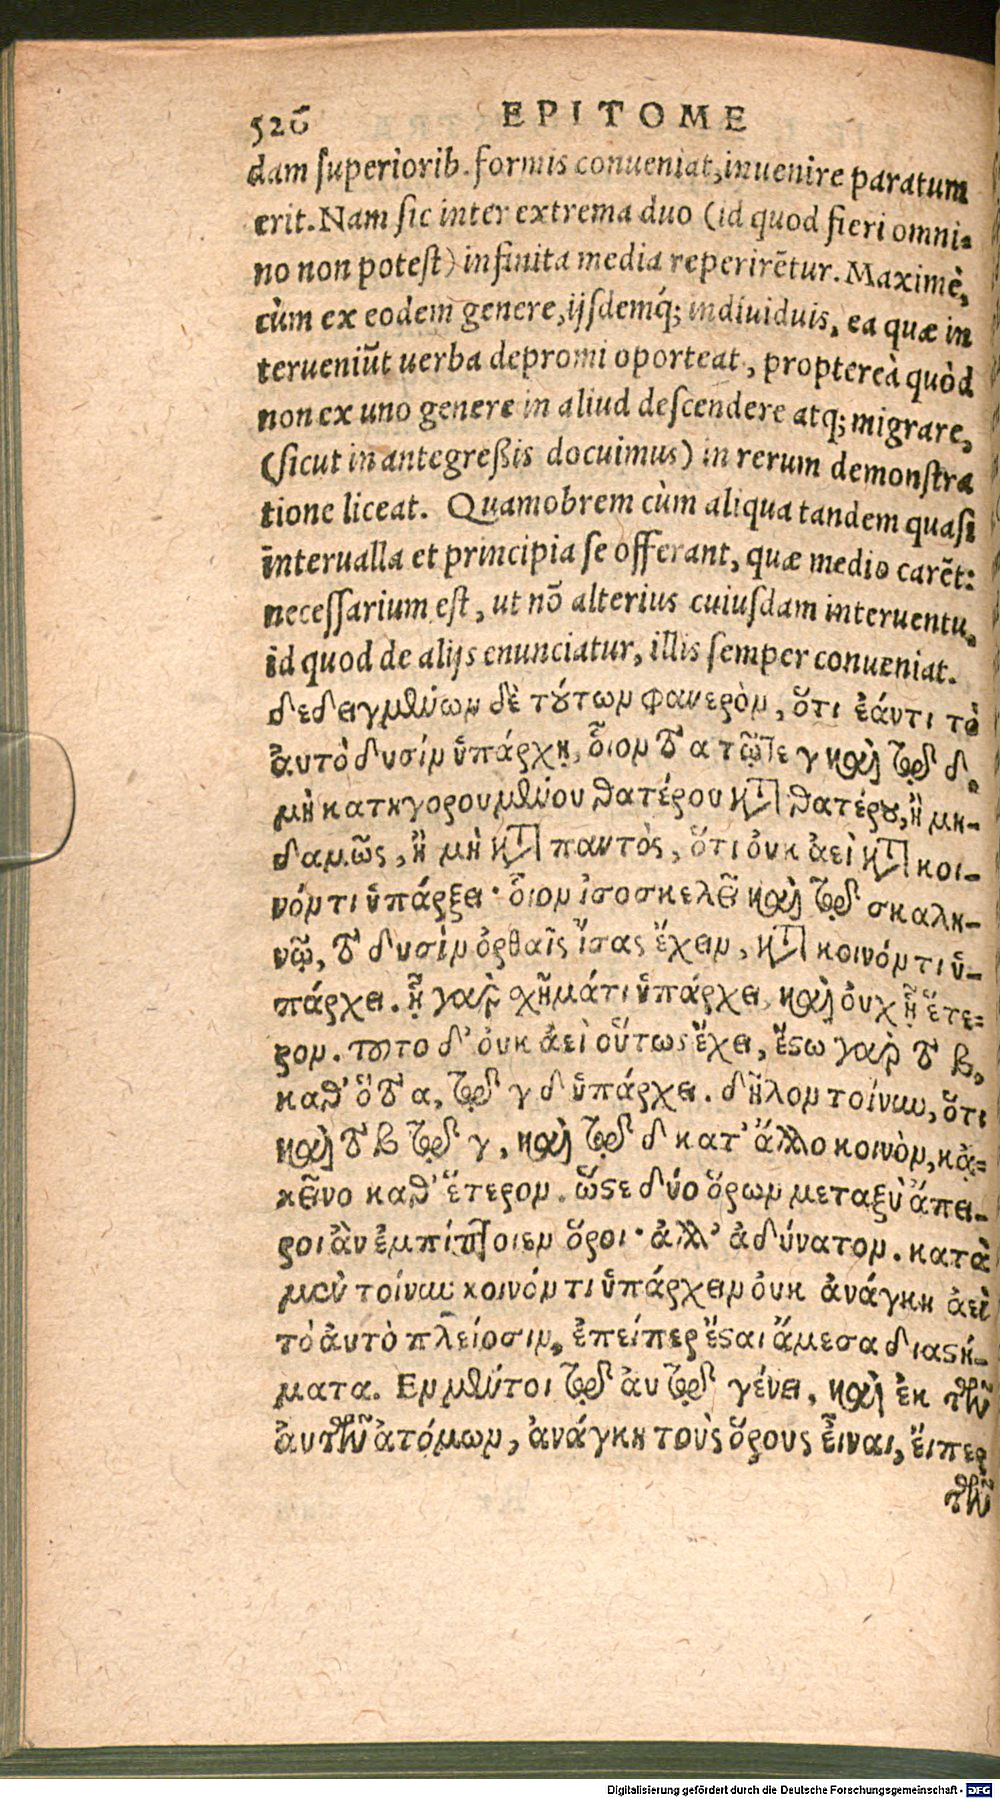 520 EPITOME
dam superiorib. formis conueniat, inuenire paratum
erit. Nam sic inter extrema duo (id quod fieri omni-
no non potest) infinita media reperirētur. Maximè,
cùm ex eodem genere, ijsdemq́; indiuiduis, ea quæ in
terueniūt uerba depromi oporteat, propterea quòd
non ex uno genere in aliud descendere atq; migrare,
(sicut in antegreßis docuimus) in rerum demonstra
tione liceat. Quamobrem cùm aliqua tandem quasi
interualla et principia se offerant, quæ medio carēt:
necessarium est, ut nō alterius cuiusdam interuentu,
id quod de alijs enunciatur, illis semper conueniat.
δεδειγμένων δὲ τούτων φανερὸν, ὅτι ἐάν τι τὸ
ἀυτὸ δυσίν ὑπάρχῃ, οἷον τὸ α τῷτε γ καὶ τῷ δ,
μὴ κατηγορουμένου θατέρου κατὰ θατέρου, ἢ μη-
δαμῶς, ἢ μὴ κατὰ παντὸς, ὅτι ὀυκ ἀεὶ κατὰ κοι-
νόν τι ὑπάρξει· οἷον ἰσοσκελεῖ καὶ τῷ σκαλη-
νῷ, τὸ δυσὶν ὀρθαῖς ἴσας ἔχειν, κατὰ κοινόν τι ὑ-
πάρχει. ᾗ γὰρ σχῆμά τι ὑπάρχει, καὶ ὀυχ ᾗ ἕτε-
ρον. τοῦτο δ' ὀυκ ἀεὶ οὕτως ἔχει, ἔστω γὰρ τὸ β,
καθ' ὃ τὸ α, τῷ γ δ ὑπάρχει. δῆλον τοίνυν, ὅτι
καὶ τὸ β τῷ γ, καὶ τῷ δ κατ' ἄλλο κοινὸν, κᾀ-
κεῖνο καθ' ἕτερον. ὥστε δύο ὅρων μεταξὺ ἄπει-
ροι ἂν ἐμπίπτοιεν ὅροι· ἀλλ' ἀδύνατον. κατὰ
μὲν τοίνυν κοινόν τι ὑπάρχειν ὀυκ ἀνάγκη ἀεὶ
τὸ ἀυτὸ πλείοσιν, ἐπείπερ ἔσται ἄμεσα διαστή-
ματα. Εν μέντοι τῷ ἀυτῷ γένει, καὶ ἐκ τῶν
ἀυτῶν ἀτόμων, ἀνάγκη τοὺς ὅρους εἶναι, ἔιπερ
τῶν
Digitalisierung gefördert durch die Deutsche Forschungsgemeinschaft - DFG